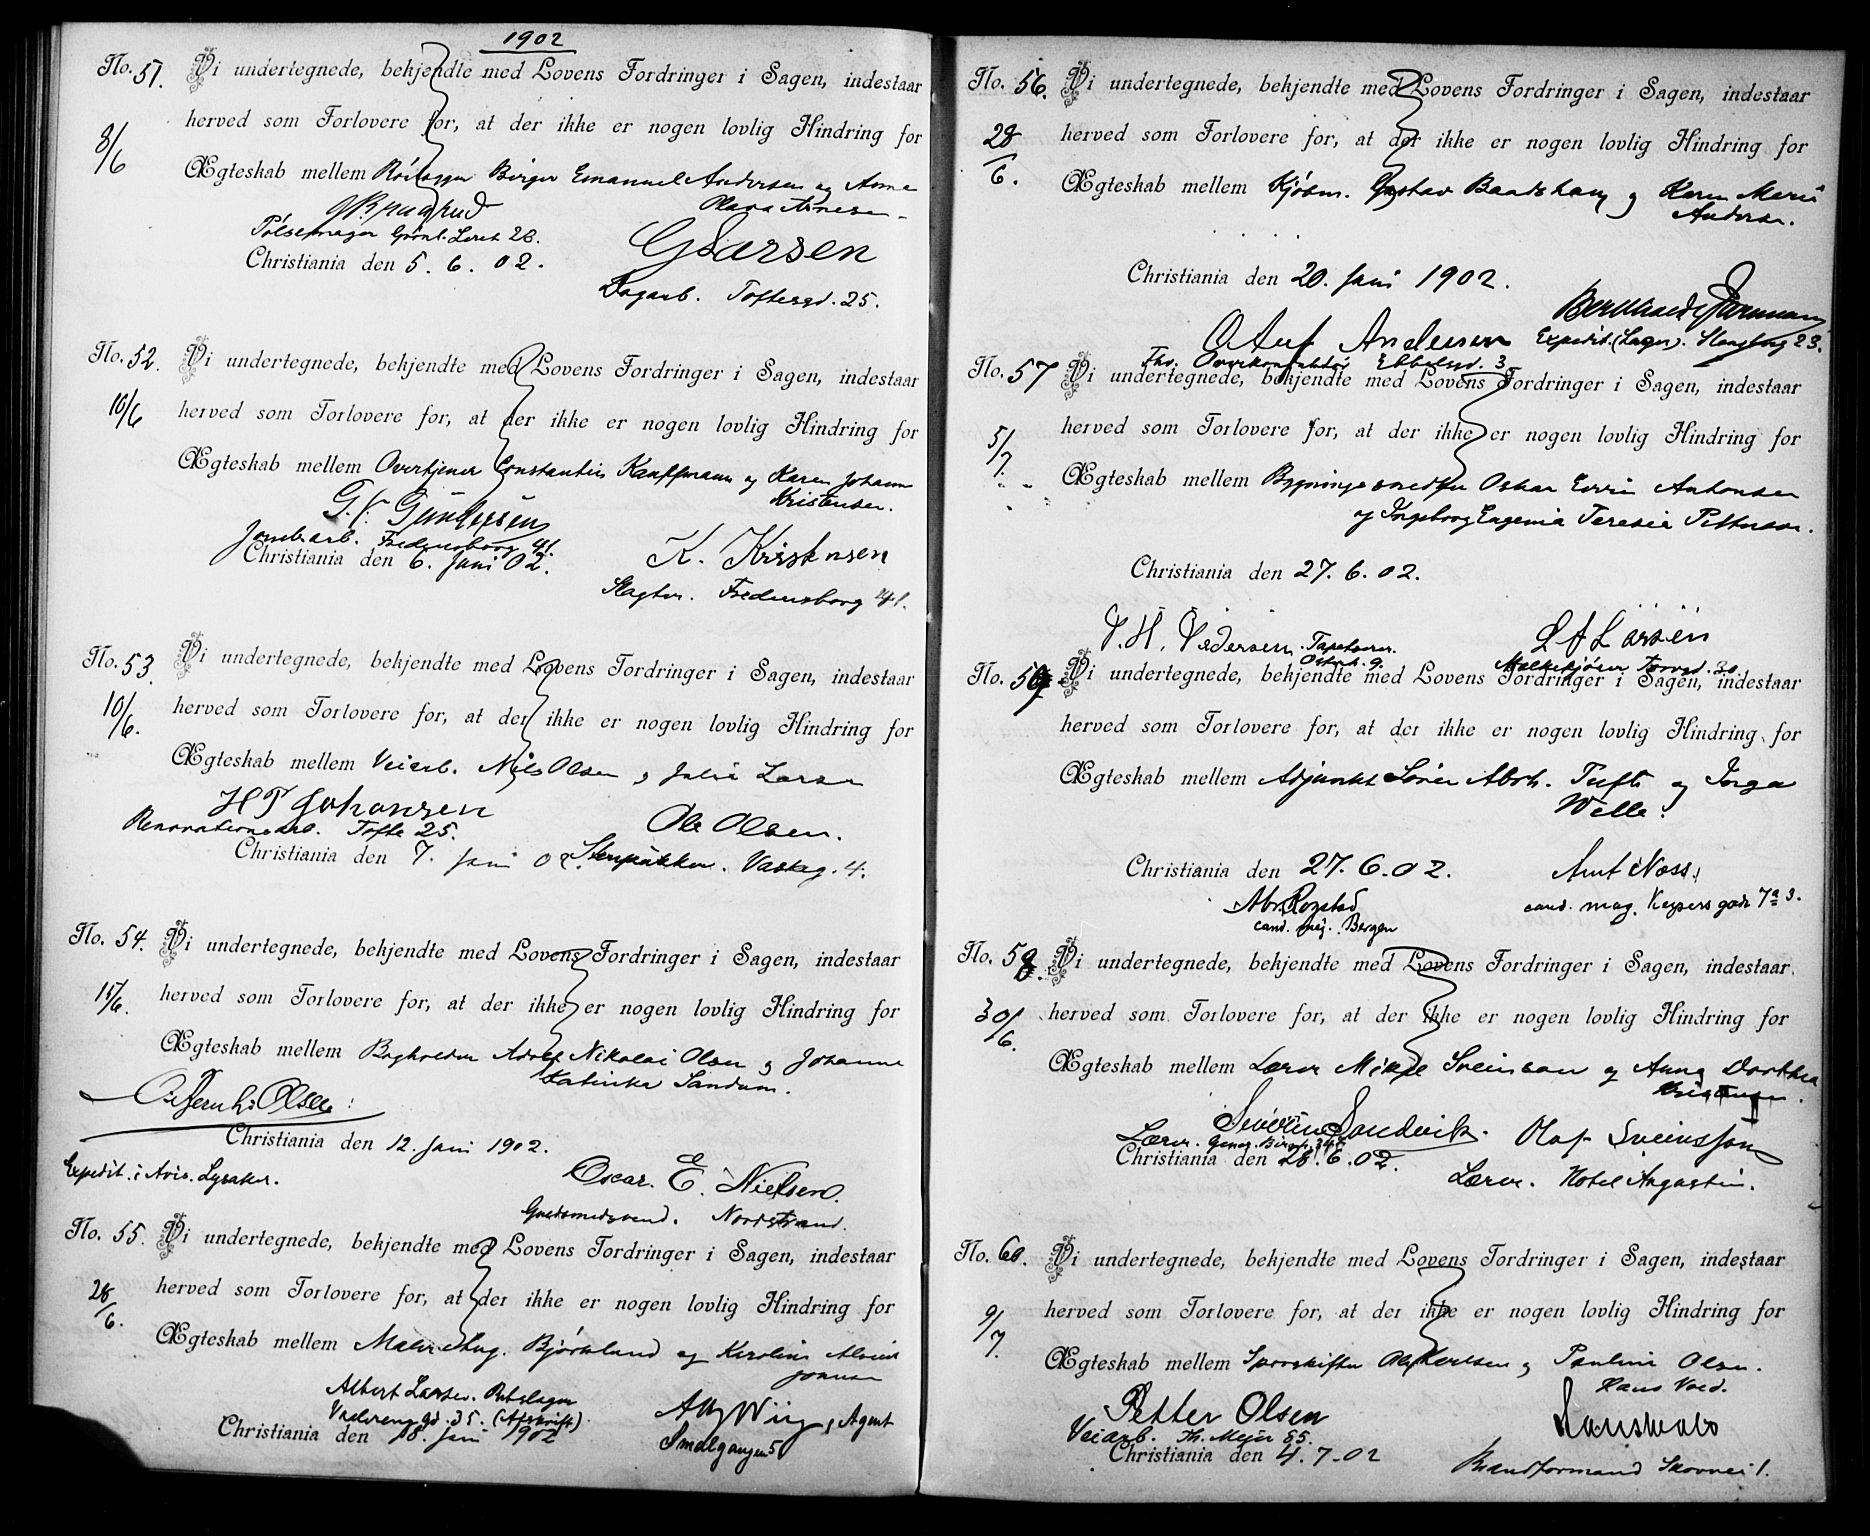 1902
No. 51. Vi undertegnede, bekjendte med Lovens Fordringer i Sagen, indestaar
8/6 herved som Forlovere for, at der ikke er nogen lovlig Hindring for
Ægteskab mellem Rørlægger Birger Emanuel Andersen og Anna
Olava Arnesen
Pølsemager Grønl. Leret 28. G Larsen
Christiania den 5. 6. 02.
Dagarb. Toftesgd. 25.
No. 52. Vi undertegnede, bekjendte med Lovens Fordringer i Sagen, indestaar
10/6 herved som Forlovere for, at der ikke er nogen lovlig Hindring for
Ægteskab mellem Overtjener Constantin Kauffmann og Karen Johann
Kristensen.
Gundersen
Jernbarb. Fredensborg 41. K. Kristensen
Christiania den 6. Juni 02.
Slagter. Fredensborg 41.
No. 53. Vi undertegnede, bekjendte med Lovens Fordringer i Sagen, indestaar
10/6. herved som Forlovere for, at der ikke er nogen lovlig Hindring for
Ægteskab mellem Veiarb. Nils Olsen og Julie Larsen
H T Johansen Ole Olsen.
Renovationsarb. Tofte 25.
Christiania den 7. Juni 02. Stenpukker. Vaskeg. 4.
No. 54. Vi undertegnede, bekjendte med Lovens Fordringer i Sagen, indestaar
15/6. herved som Forlovere for, at der ikke er nogen lovlig Hindring for
Ægteskab mellem Bogholder Adolf Nikolai Olsen og Johanne
Katinka Sandum.
Olsen
Christiania den 12. Juni 1902.
Expedit. i Avis. Lysaker. Oscar. E. Nielsen.
Guldsmedsvend. Nordstrand.
No. 55. Vi undertegnede, bekjendte med Lovens Fordringer i Sagen, indestaar
28/6. herved som Forlovere for, at der ikke er nogen lovlig Hindring for
Ægteskab mellem Maler Aug. Bjørklund og Karoline
Albert Larsen. Rebslager
Vaalereng gd. 35. (Afskrift). Wiig, Agent
Christiania den 18. Juni 1902 Smalgangen 5
No. 56. Vi undertegnede, bekjendte med Lovens Fordringer i Sagen, indestaar
28/6. herved som Forlovere for, at der ikke er nogen lovlig Hindring for
Ægteskab mellem Kjøbm. Gustav Baadshaug og Karen Marie
Andersen.
Christiania den 20. Juni 1902.
Andersen Expedit. (Lager). 23.
Fhv. Overkonduktør 3
No. 57 Vi undertegnede, bekjendte med Lovens Fordringer i Sagen, indestaar
5/7. herved som Forlovere for, at der ikke er nogen lovlig Hindring for
Ægteskab mellem Bygningssnedker Oskar Antonsen
og Ingeborg Eugenia Teresia Pettersen.
Christiania den 27. 6. 02.
Pedersen. Tapetserer. L A Larsen
9. Melkekjører Torvgd. 30.
No. 5 Vi undertegnede, bekjendte med Lovens Fordringer i Sagen, indestaar
herved som Forlovere for, at der ikke er nogen lovlig Hindring for
Ægteskab mellem Adjunkt Sørен Abrh. Tufte og Inga
Welle.
Christiania den 27. 6. 02. Arnt Næss.
Abr. Rogstad cand. mag. Keysers gade 7a 3.
cand. Bergen
No. 58. Vi undertegnede, bekjendte med Lovens Fordringer i Sagen, indestaar
30/6. herved som Forlovere for, at der ikke er nogen lovlig Hindring for
Ægteskab mellem Lærer Mikal Sveinsson og Anna Dorthea
Kristensen.
Severin Sandvik. Olaf Sveinsson
Lærer.
Christiania den 28. 6. 02.
Lærer. Hotel Augustin.
No. 60. Vi undertegnede, bekjendte med Lovens Fordringer i Sagen, indestaar
9/7. herved som Forlovere for, at der ikke er nogen lovlig Hindring for
Ægteskab mellem Sporskifter Olaf Karlsen og Pauline Olsen.
Hans Vold.
Petter Olsen
Veiarb. Th. Meyer 85.
Christiania den 4. 7. 02
Brandformand Skovvei 1.